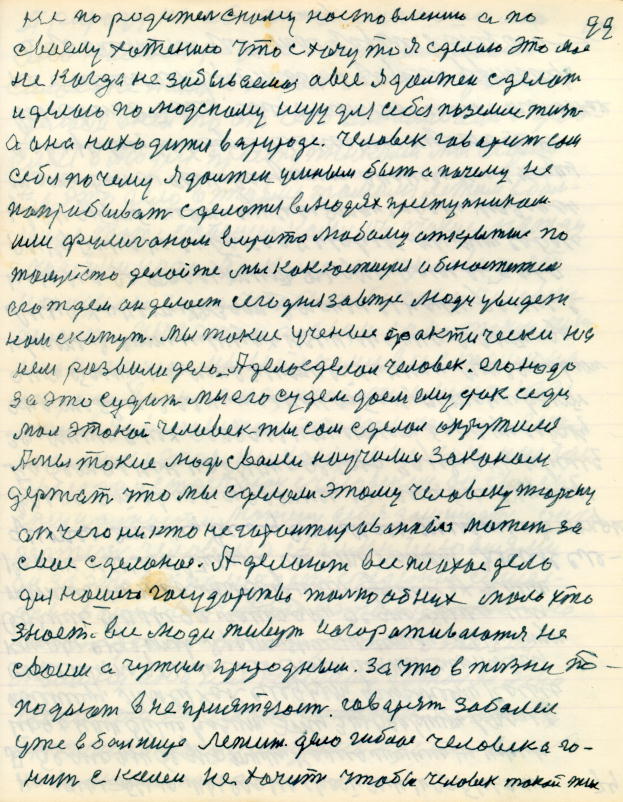 99
не по родительскому настовлению а по
своему хотению что с хочу то я сделаю это мое
не когда не забываемоя а все я должен сделат
и делаю по людскому ищу для себя на земле жизн
а она находится в природе. Человек говорит сам
себя почему я должен умным быт а почему не
попрабыват сделатся в людях преступником
или фулиганом варота любому аткрытые по
жалуйста делайте мы как юстиция
его ждем он делает сегодня завтре люди увидят
нам скажут. Мы такие ученые практически на
нем развили дело. А дело сделал человек. его надо
за это судит мы его судем даем ему срок седи
мол этакой человек ты сам сделал
А мы такие люди свалеи научилися законам
держат что мы сделали этому человеку тюрму
ат чего никто не гарантированный может за
свае сделаное. А делают все плахое дело
для нашего государства толко об них мало хто
знает. все люди живут и агараживаются не
своим а чужим природным. За что в жизни по-
подают в не приятност. говарят заболел
уже в болнице лежит. дело гиблое человека го-
нит с колеи не хочит чтобы человек такой жил